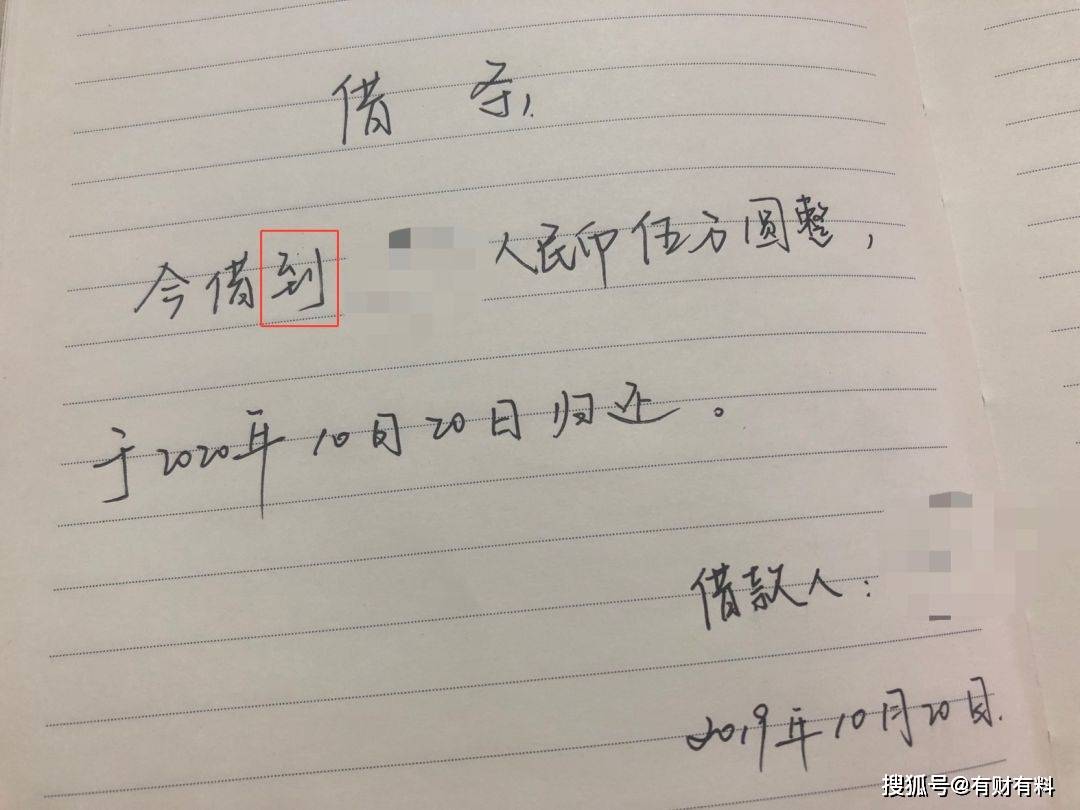 借条
今借到 人民币伍万圆整,
于2020年10月20日归还。
借款人:
2019年10月20日.
搜狐号@有财有料